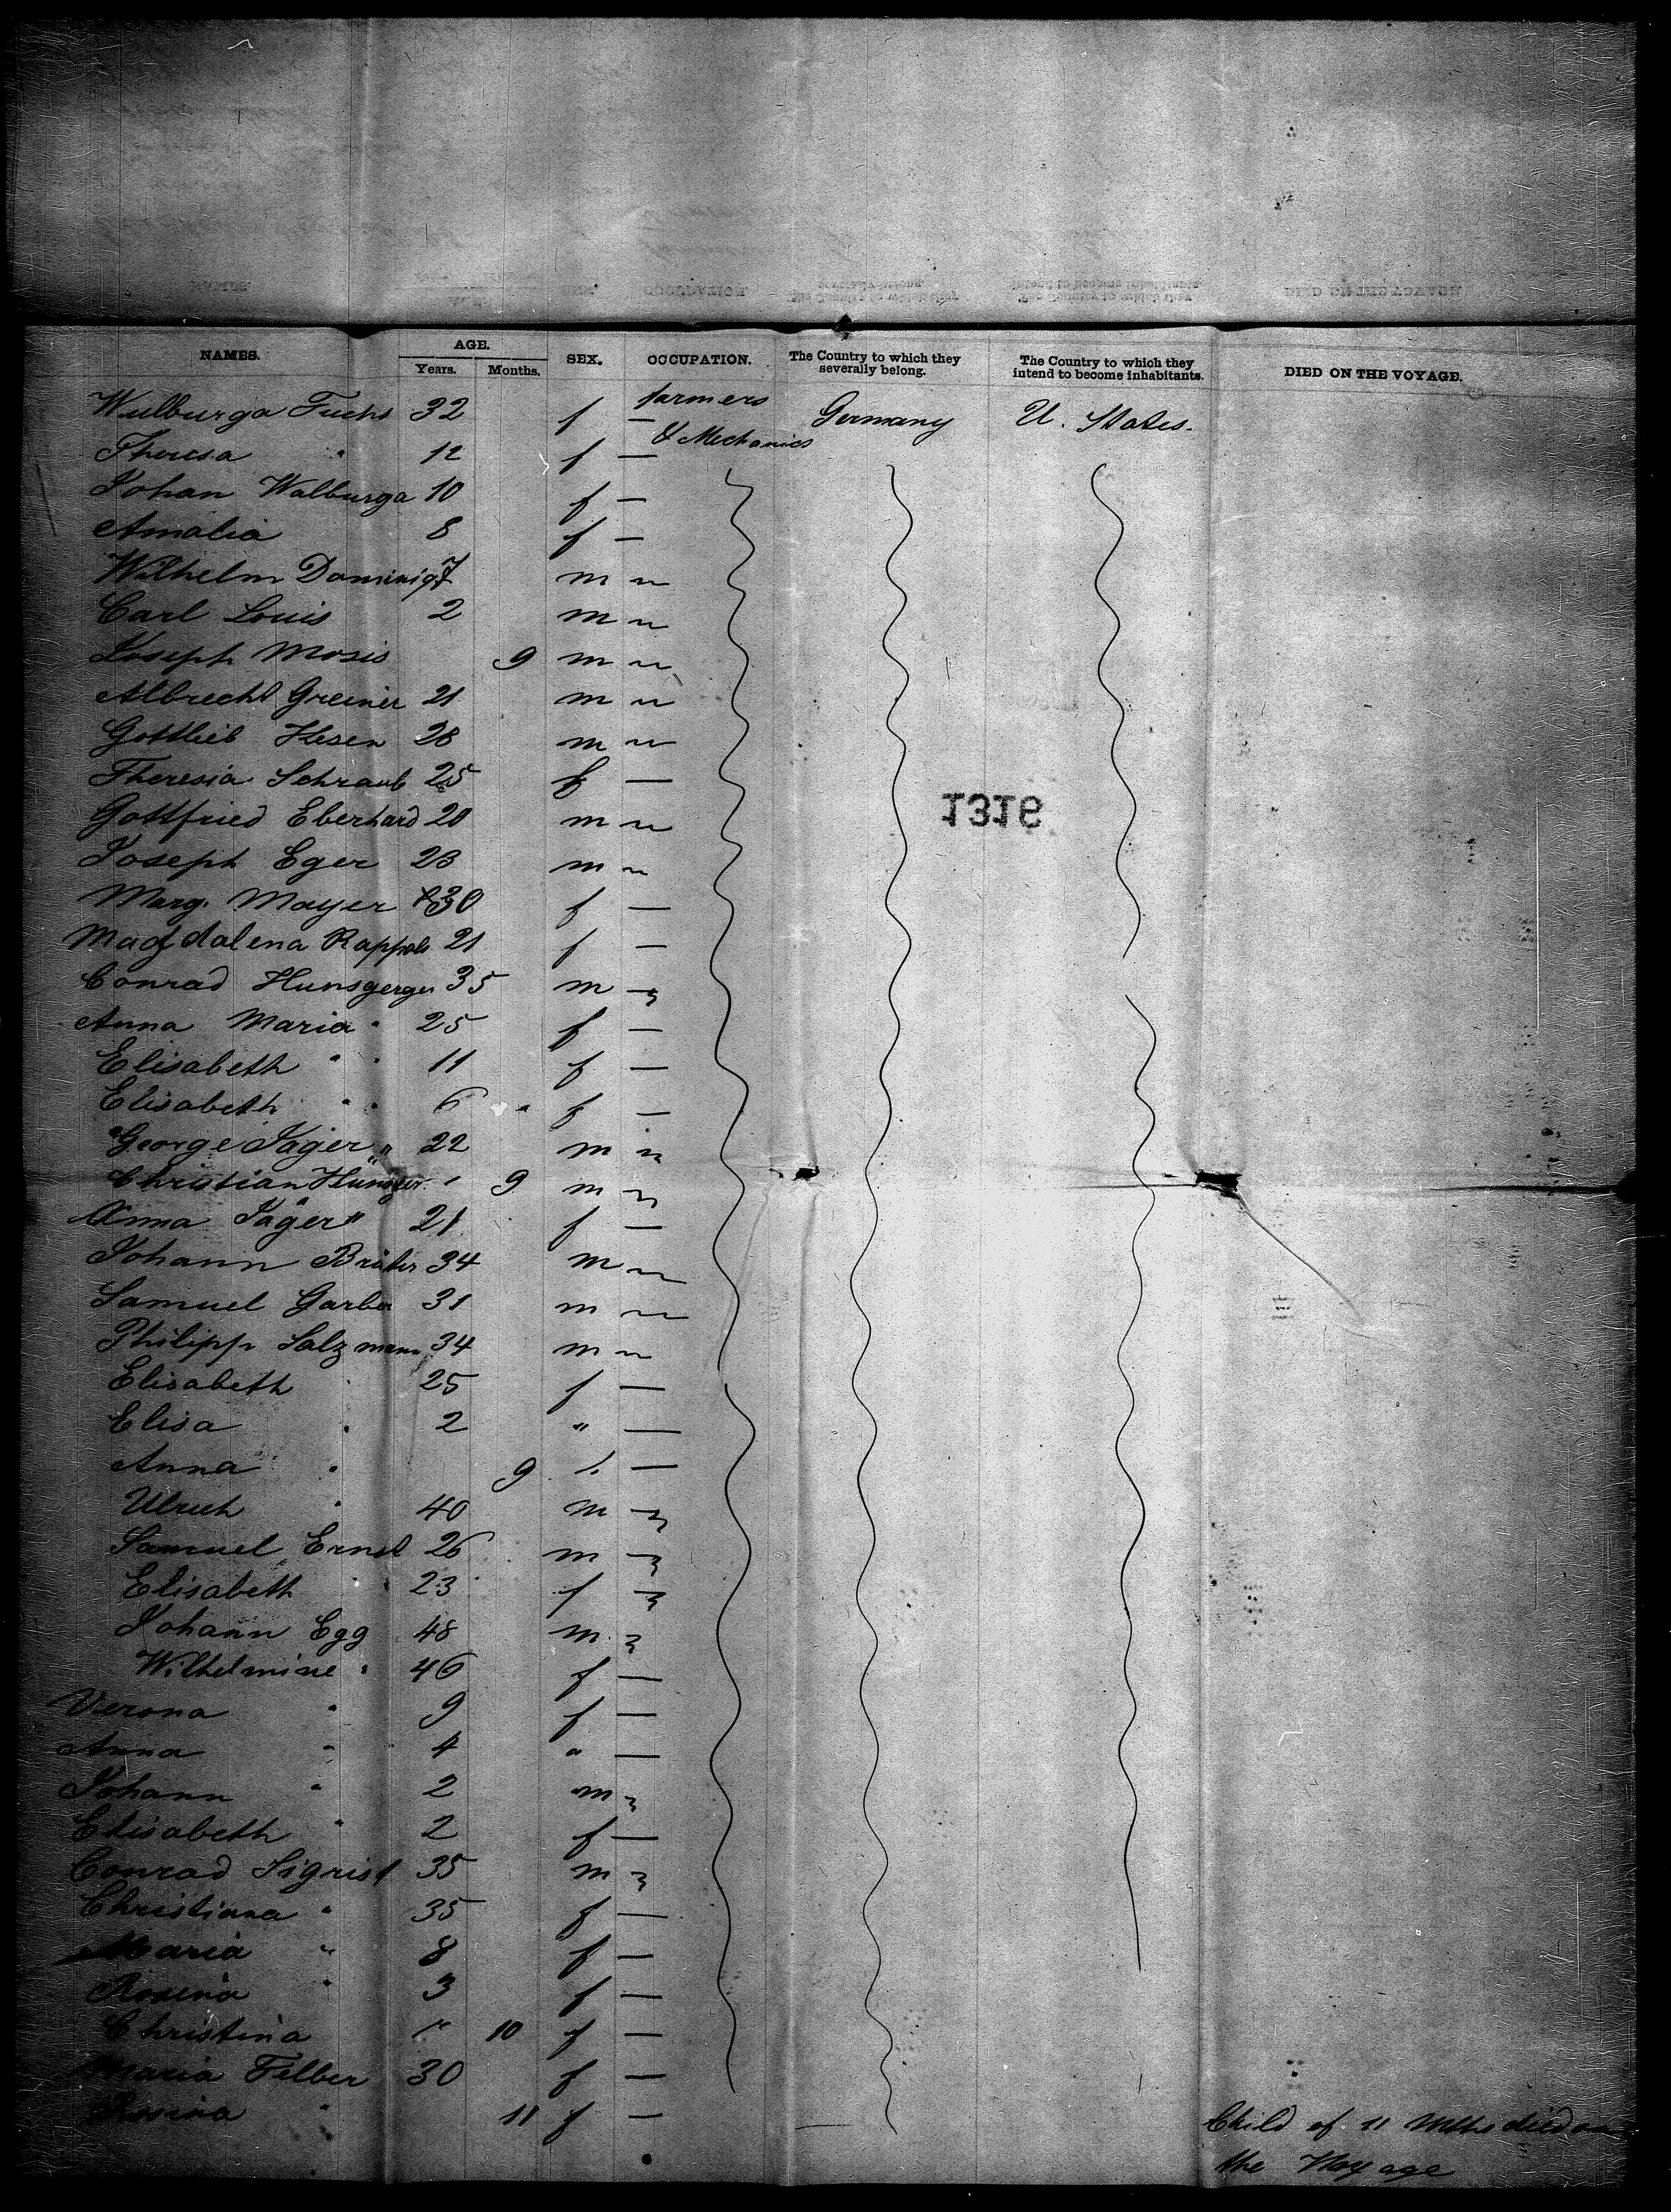 NAMES. AGE. SEX. OCCUPATION. The Country to which they severally belong. The Country to which they intend to become inhabitants. DIED ON THE VOYAGE.
Years. Months.
Wulburga Fuchs 32 f — farmers Germany U. States.
Theresa " 12 f — & Mechanics
Johan Walburga 10 f —
Amalia 8 f —
Wilhelm Dominiq 7 m
Carl Louis 2 m
Joseph Mosis 9 m
Albrecht Greiner 21 m
Gottlieb Hesen 28 m
Theresia Schraub 25 f —
Gottfried Eberhard 20 m
1316
Joseph Eger 23 m
Marg. Mayer 30 f —
Magdalena Rappold 21 f —
Conrad Hunsgerger 35 m
Anna Maria " 25 f —
Elisabeth " " 11 f —
Elisabeth " " 6 " f —
George Jäger " 22 m
Christian Hunsger. 9 m
Anna Jäger " 21 f —
Johann Bräter 34 m
Samuel Garber 31 m
Philipp Salzmann 34 m
Elisabeth 25 f —
Elisa " 2 " —
Anna " 9 —
Ulrich " 40 m
Samuel Ernst 26 m
Elisabeth " 23 f
Johann Egg 48 m
Wilhelmine " 46 f —
Verona " 9 f —
Anna " 4 " —
Johann " 2 m
Elisabeth " 2 f —
Conrad Sigrist 35 m
Christiana " 35 f —
Maria " 8 f —
Rosina " 3 f —
Christina " 10 f —
Maria Felber 30 f —
Rosina " 11 f — Child of 11 Mths died on
the Voyage